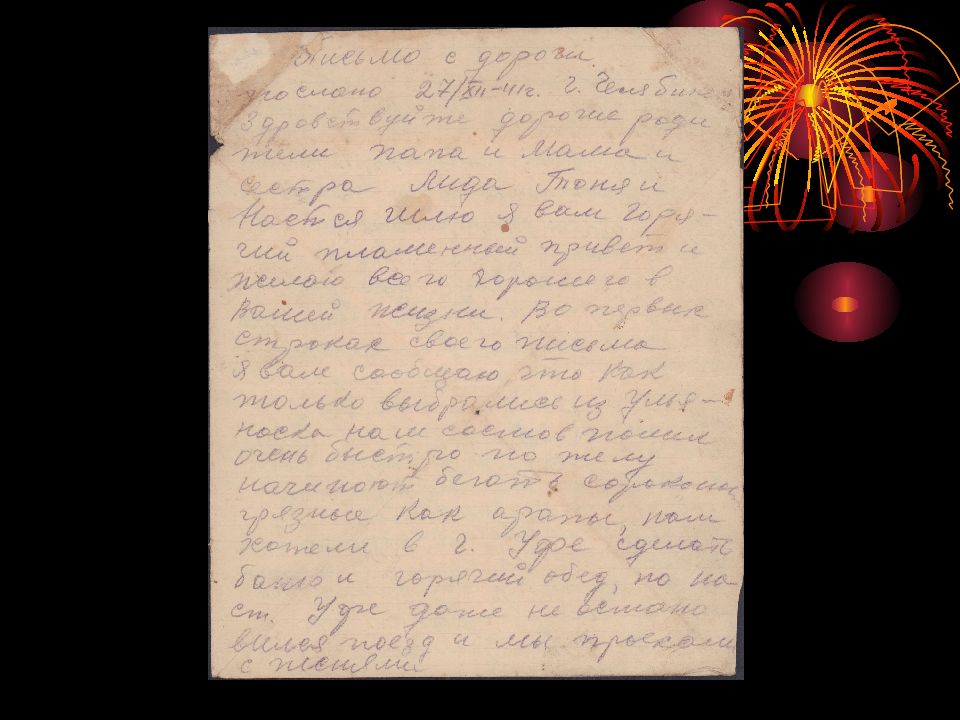 Письмо с дороги.
послано 27/XII-41г. г. Челябинск
Здравствуйте дорогие роди
тели папа и Мама и
сестра Лида Тоня и
Настся шлю я вам горя-
чий пламенный привет и
желаю всего хорошего в
Вашей жизни. Во первых
строках своего письма
я вам сообщаю, что как
только выбрались из Улья-
новска наш состав пошел
очень быстро по телу
начинают бегать
грязные как арапы, нам
хотели в г. Уфе сделать
баню и горячий обед, но на
ст. Уфе даже не остано
вился поезд и мы проехали
с песнями